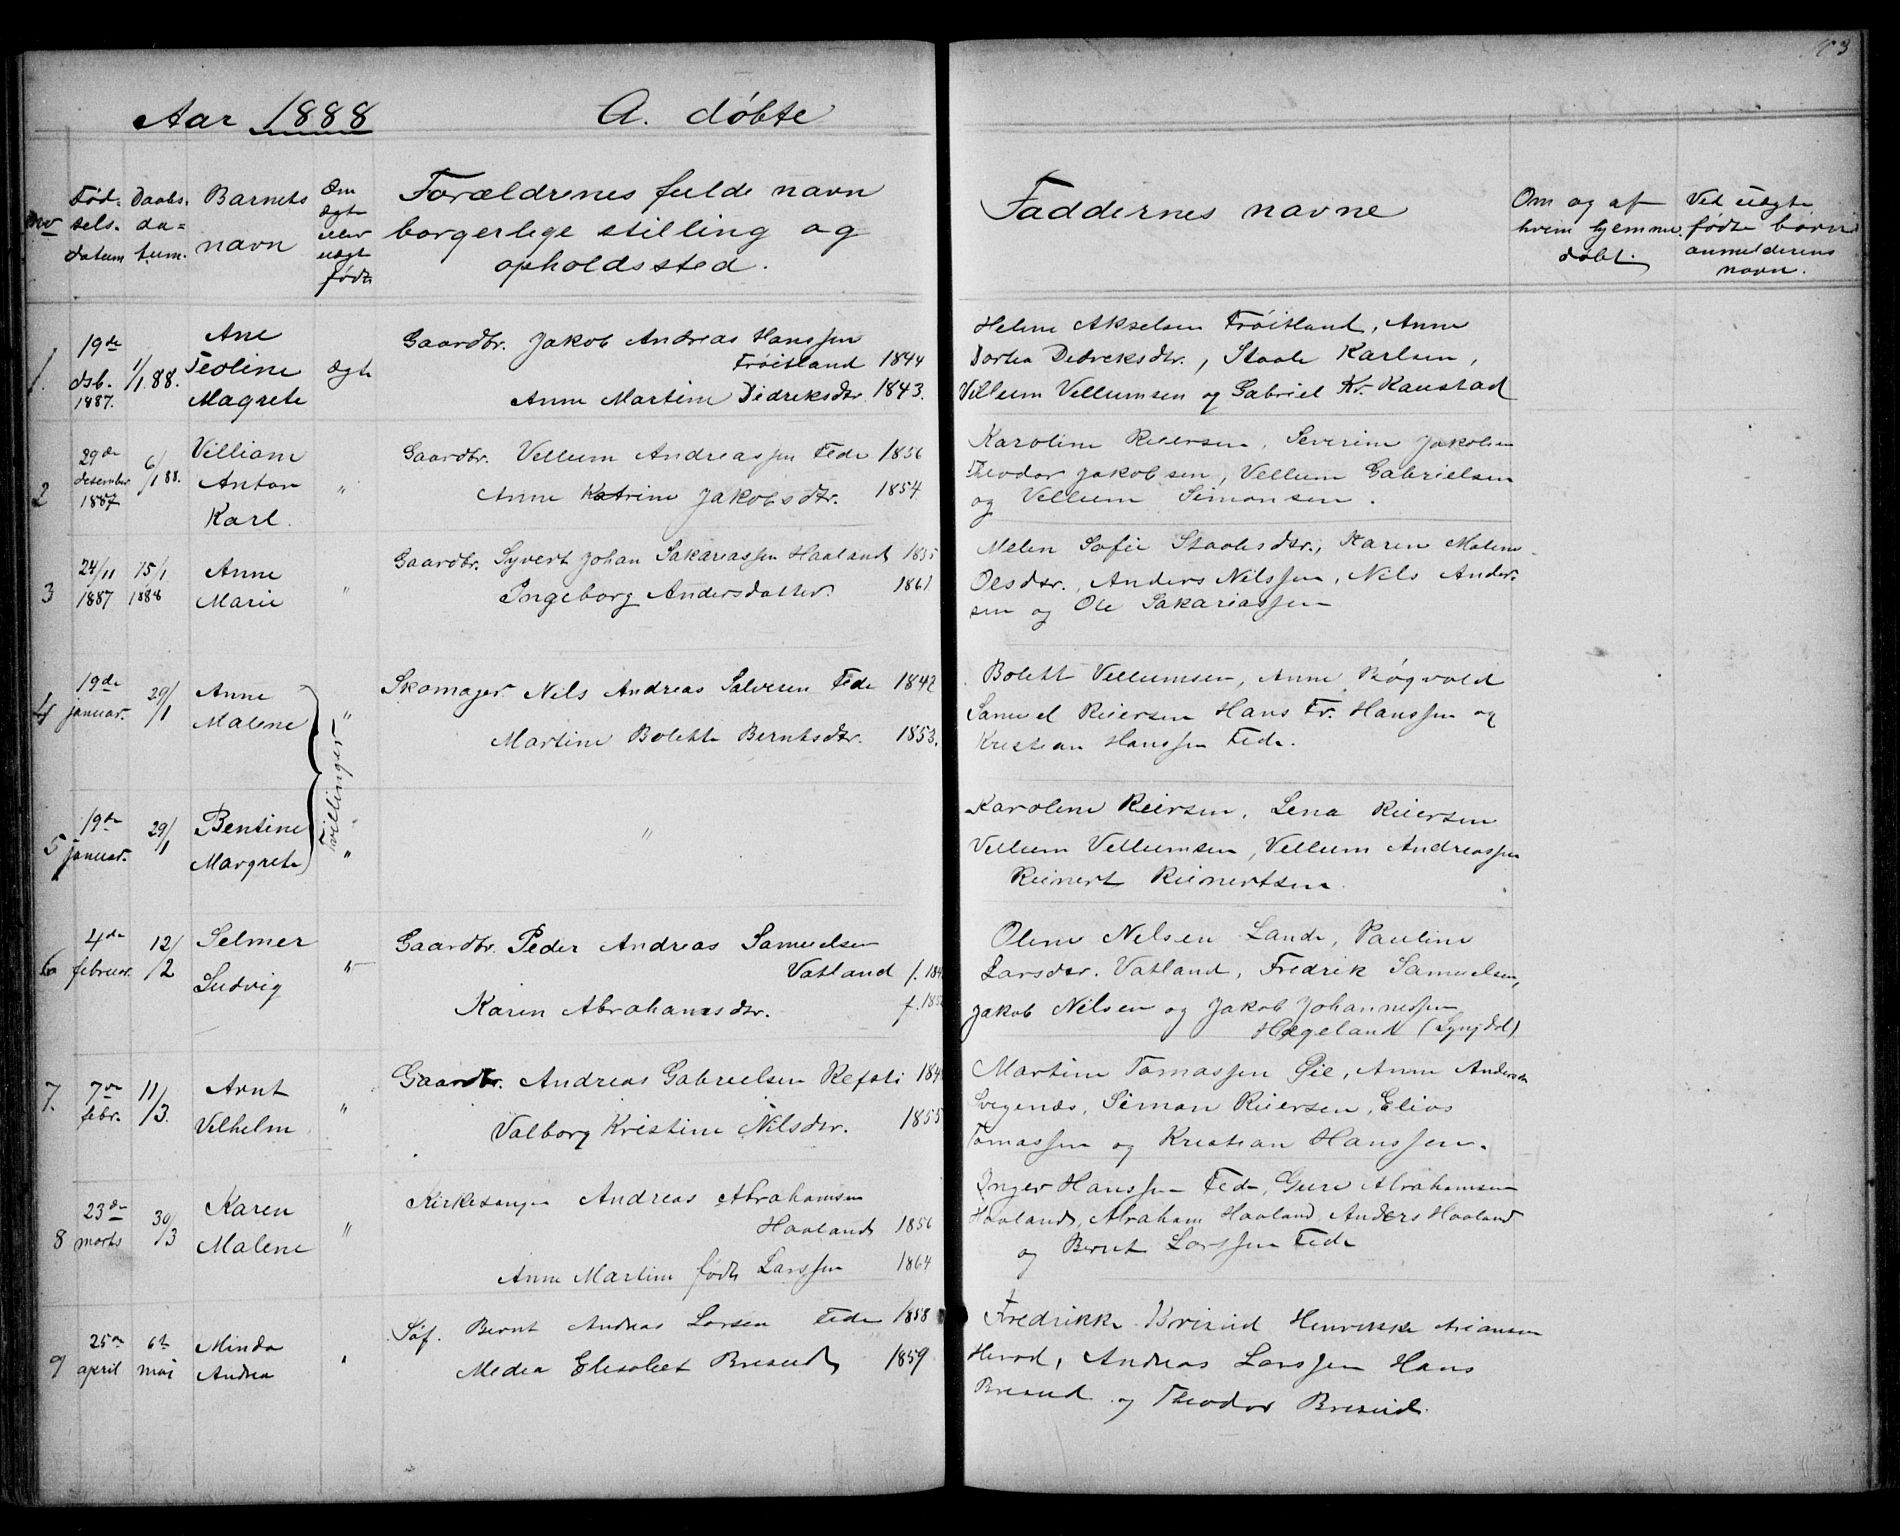 Aar 1888
A. døbte
No
Fødselsdatum
Daabsdatum.
Barnets navn
Om ægte eller uægte født
Forældrenes fulde navn
borgerlege stilling og
opholdssted.
Faddernes navne
Om og af hvem hjemmedøbt.
Ved uægte fødte børn anmelderens navn.
1. 19de dsb. 1887. 1/1 88. Ane Teoline Magrete ægte
Gaardbr. Jakob Andreas Hanssen
Frøitland 1844
Anne Martine Didreksdtr. 1843.
Helene Akselsen Frøitland, Anne
Dortea Dedreksdtr., Staale Karlsen,
Villum Vellumsen og Gabriel Kr. Raustad
2 29de desember 1887 6/1 88. Villiam Anton Karl. "
Gaardbr. Vellum Andreassen Fede 1856
Anne Katrine Jakobsdtr. 1854
Karoline Reiersen, Severine Jakobsen
Theodor Jakobsen, Vellum Gabrielsen
og Vellum Simonsen.
3 24/11 1887 15/1 1888 Anne Marie "
Gaardbr. Syvert Johan Sakariassen Haaland 1855
Ingeborg Andersdatter. 1861
Melen Sofie Staalesdtr., Karen Malene
Olsdtr., Anders Nilssen, Nils Andersen
og Ole Sakariassen
4 19de januar. 29/1 Anne Malene "
tvillinger
Skomager Nils Andreas Salvesen Fede 1842
Martine Bolette Berntsdtr. 1853.
Bolett Vellumsen, Anne Røgvold
Samuel Reiersen Hans Fr. Hanssen og
Kristian Hanssen Fede.
5 19de januar. 29/1 Bentine Margrete "
"
Karolene Reiersen, Lena Reiersen
Vellum Vellumsen, Vellum Andreassen
Reinert Reinertsen.
6 4de februar. 12/2 Selmer Ludvig "
Gaardbr. Peder Andreas Samuelsen
Vatland f. 184
Karen Abrahamsdtr. f. 185
Olene Nelsen Lande, Pauline
Larsdtr. Vatland, Fredrik Samuelsen,
Jakob Nilsen og Jakob Johannessen
Hægeland (Lyngdal)
7. 7de febr. 11/3. Arnt Vilhelm "
Gaardbr. Andreas Gabrielsen Refsti 184
Valborg Kristine Nilsdtr. 1855
Martine Tomassen Øie, Anne Andersdtr
Svegenes, Simon Reiersen, Elias
Tomassen og Kristian Hanssen.
8 23de marts 30/3 Karen Malene "
Kirkesanger Andreas Abrahamsen
Haaland 1856
Anne Martine født Larssen 1864
Inger Hanssen Fede, Guri Abrahamsen
Haaland, Abraham Haaland, Anders Haaland
og Bernt Larssen Fede
9 25de april 6te mai Minda Andrea "
Søf. Bernt Andreas Larsen Fede 1858
Medea Elisabet Bresud 1859
Fredrikke Bresud Henrikke Ariansen
Herod, Andreas Larssen Hans
Bresud og Theodor Bresud.